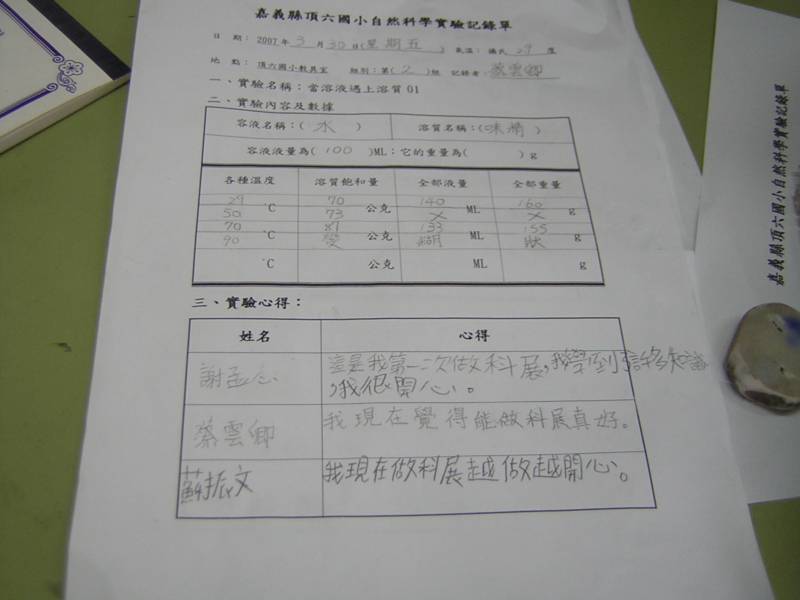 嘉義縣頂六國小自然科學實驗記錄單
日 期：2007年3月30日(星期五 ) 氣溫：攝氏29度
地 點：頂六國小教具室 組別：第(2)組 記錄者：蔡雲卿
一、實驗名稱：當溶液遇上溶質01
二、實驗內容及數據
容液名稱：( 水 ) 溶質名稱：(味精)
容液液量為( 100 )ML；它的重量為( ) g
各種溫度 溶質飽和量 全部液量 全部重量
29 70 140 160
50 ℃ 73 公克 X ML X g
70 81 133 155
90 ℃ 變 公克 糊 ML 狀 g
℃ 公克 ML g
三、實驗心得：
姓名 心得
謝孟心 這是我第一次做科展，我學到許多知識
，我很開心。
蔡雲卿 我現在覺得能做科展真好。
蘇振文 我現在做科展越做越開心。
嘉義縣頂六國小自然科學實驗記錄單